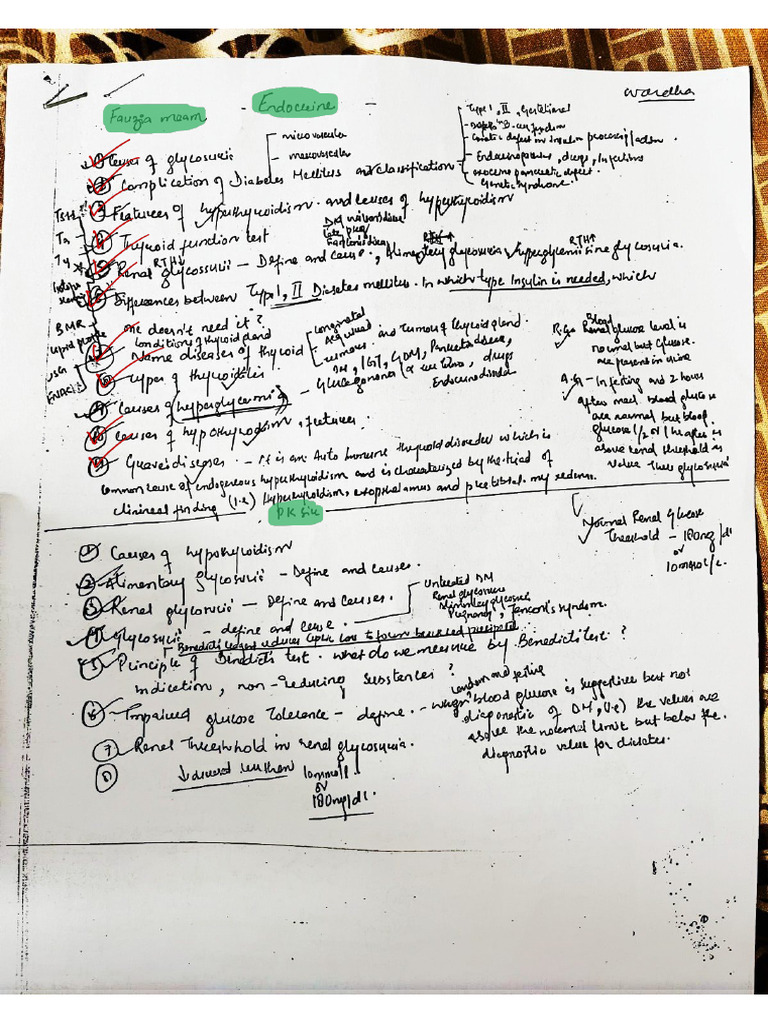 Wardha
Fauzia meam - Endocrine -
① Causes of glycosuria
microvascular
macrovascular
Type 1, II, Gestational
② Complication of Diabetes Mellitus and classification
Genetic defect in insulin processing/action.
Endocrinopathies, drugs, Infections
exocrine pancreatic defect.
Genetic syndrome.
③ Features of hyperthyroidism and causes of hyperthyroidism
TSH
T3
T4
④ Thyroid function test
⑤ Renal glycosuria - Define and cause, Alimentary glycosuria, hyperglycemia glycosuria.
RTH↓
RTH↑
⑥ Differences between Type I, II Diabetes mellitus. In which type Insulin is needed, which
one doesn't need it?
BMR
lipid profile
USG
FNAC
Conditions of thyroid gland
Name diseases of thyroid
congenital
acquired
tumours
and Tumour of thyroid gland.
types of thyroiditis
DM, IGT, GDM, Pancreatic disease,
drugs
Endocrine disorder
Causes of (hyperglycemia)
Causes of hypothyroidism, features
Graves diseases - It is an Auto Immune thyroid disorder which is
common cause of endogenous hyperthyroidism and is characterised by the triad of
clinical finding (i.e) Hyperthyroidism, exopthalamus and pretibial myxedema.
Blood
R.G → Renal glucose level is
normal but Glucose
are present in urine
A.G - In fasting and 2 hours
after meal blood glucose
are normal but blood
glucose 1/2 or 1 hr after is
above renal threshold
value thus glycosuria
PK Sir
Normal Renal Glucose
Threshold - 180mg/dl
or
10mmol/L.
① Causes of hypothyroidism
② Alimentary glycosuria - Define and causes.
③ Renal glycosuria - Define and causes.
Untreated DM
Renal glycosuria
Alimentary glycosuria
Pregnancy, Fanconi's syndrom.
④ Glycosuria - define and cause.
⑤ Principle of Benedicts test. What do we measure by Benedicts test?
indication, non-reducing substances?
⑥ Impaired glucose Tolerance - define.
random and fasting
blood glucose is suggestive but not
diagnostic of DM, (i.e) the values are
above the normal limit but below the
diagnostic value for diabetes.
⑦ Renal Threshhold in renal glycosuria.
⑧
10mmol/l
or
180mg/dl.